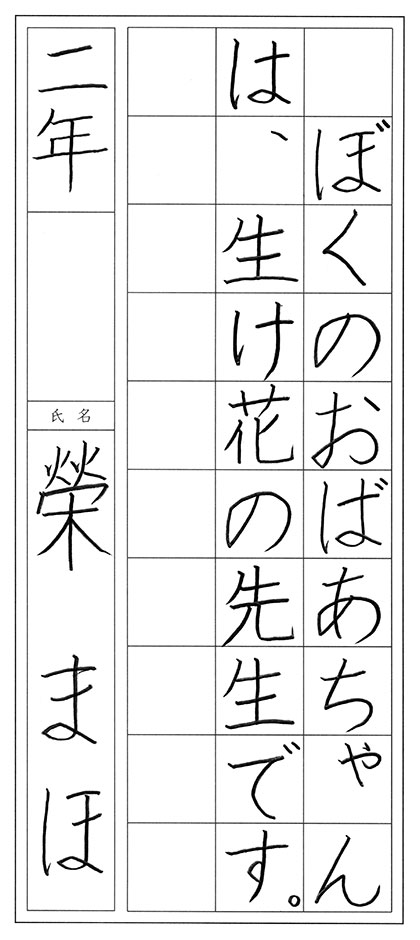 ぼくのおばあちゃん
は、生け花の先生です。
二年
氏名
榮 まほ